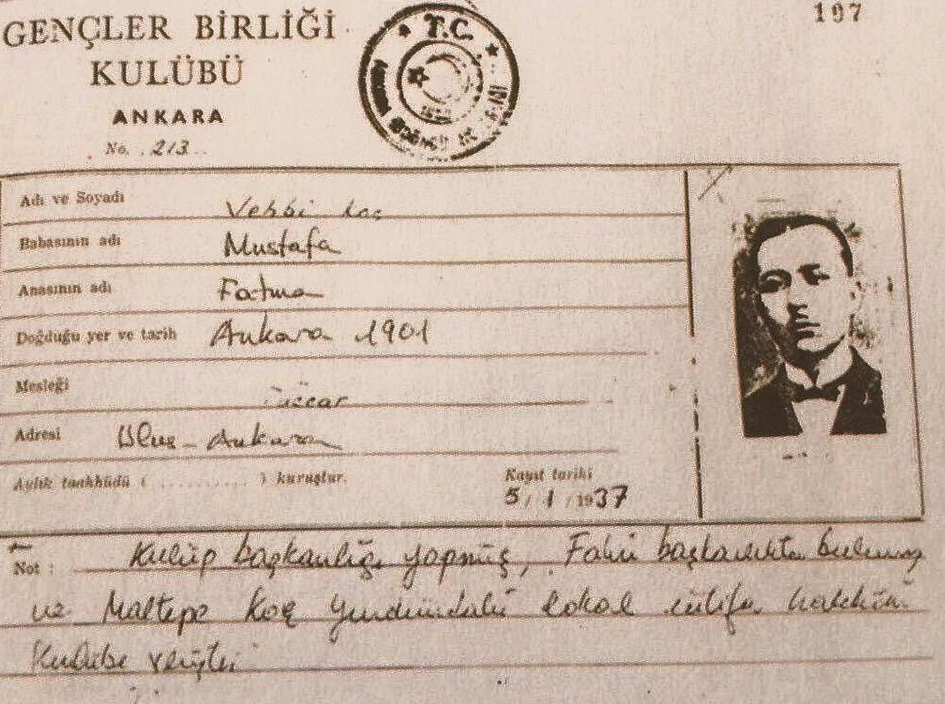 GENÇLER BİRLİĞİ
KULÜBÜ
ANKARA
No. 213
T.C.
197
Adı ve Soyadı Vehbi Koç
Babasının adı Mustafa
Anasının adı Fatma
Doğduğu yer ve tarih Ankara 1901
Mesleği
Adresi Ulus - Ankara
Aylık taahhüdü ( .......... ) kuruştur.
Kayıt tarihi
5 / 1 / 1937
Not : Kulüp başkanlığı yapmış, Fahri başkanlıkta bulunmuş
ve Maltepe Koç Yurdundaki lokal istifa hakkını
Kulübe